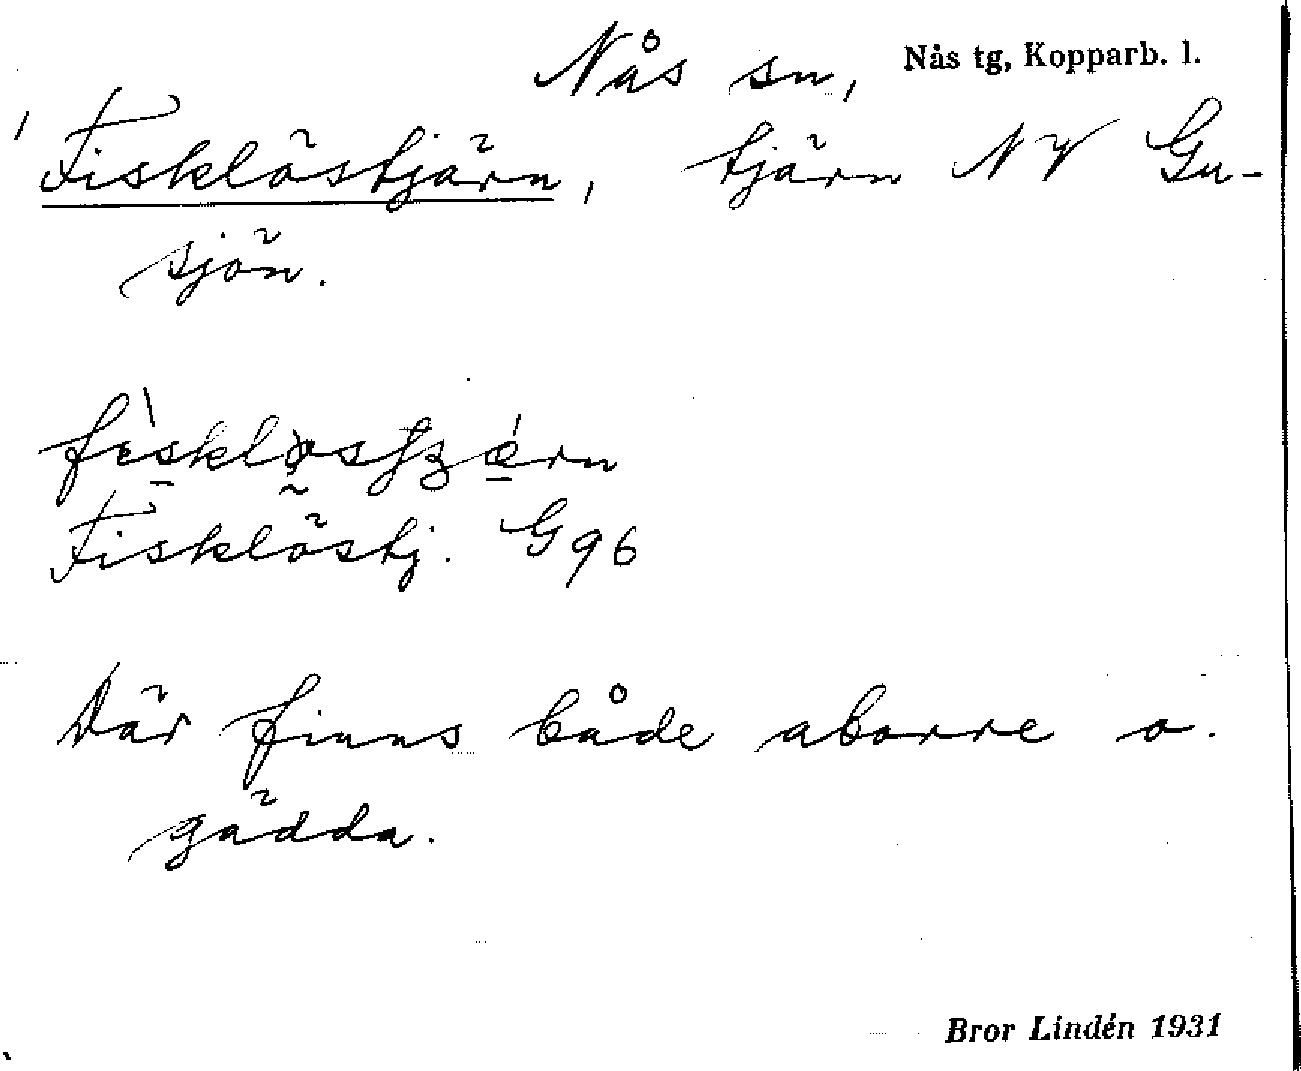 Nås sn, Nås tg, Kopparb. l.
Fisklöstjärn, tjärn NV Gu-
sjön.
Fisklöstj. G 96
Där finns både aborre o.
gädda.
Bror Lindén 1931